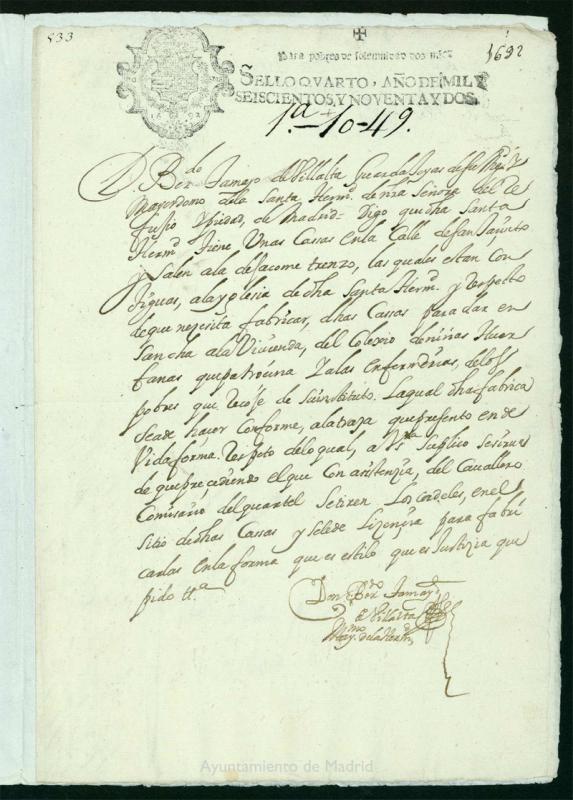 533
1692
Para pobres de solemnidad dos mrs.
SELLO QVARTO, AÑO DE MIL Y
SEISCIENTOS, Y NOVENTA Y DOS
1692
1ª-10-49.
D. Berdo Tamayo de Villalta Guarda Joyas de su Magd. y
Mayordomo de la Santa Hermd. de nra Señora del Re
fugio y piedad, de Madrid = Digo que dha Santa
Hermd tiene Unas Cassas en la Calle de san
y salen a la de Jacome trenzo, las quales estan Con
tiguas, a la yglesia de dha Santa Hermd. y respecto
de que nezesita fabricar, dhas Cassas para dar en
sancha a la Vivienda, del Colexio de niñas Huer
fanas que patrocina y a las enfermerias, de los
pobres que recoje de su instituto. La qual dha fabrica
se a de hazer Conforme, a la traza que presento en de
Vida forma. Respeto de lo qual, a Vsa Suplico se sirva
de que precediendo el que Con asistenzia, del Cauallero
Comisario del quartel Se tiren Los Cordeles, en el
sitio de dhas Cassas y se le de Lizenzia para fabri
carlas en la forma que es estilo que es Justizia que
pido &a
Don Berdo Tamayo
de Villalta
Maymo de la Hermd
Ayuntamiento de Madrid